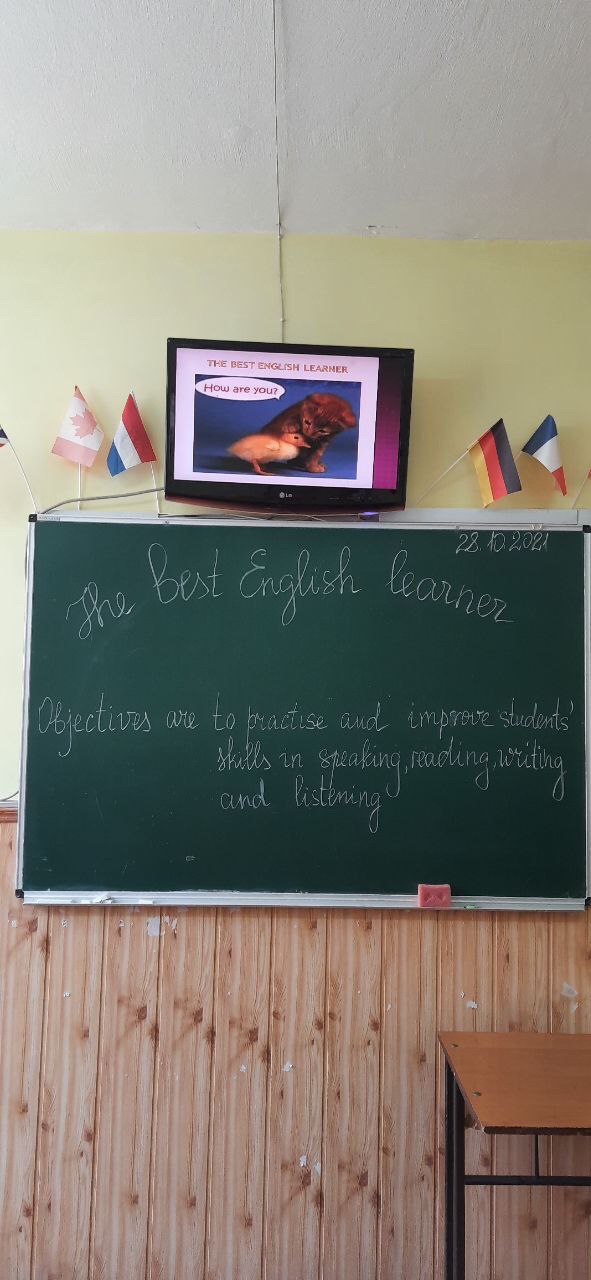 THE BEST ENGLISH LEARNER
How are you?
LG
28.10.2021
The Best English learner
Objectives are to practise and improve students'
skills in speaking, reading, writing
and listening